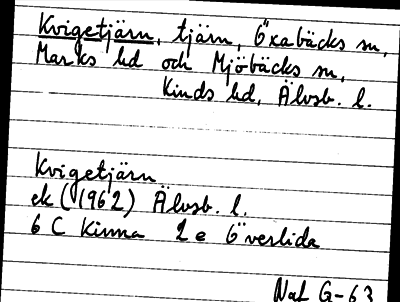 Kvigetjärn, tjärn, Öxabäcks sn,
Marks hd och Mjöbäcks sn,
Kinds hd, Älvsb. l.
Kvigetjärn
ek (1962) Älvsb. l.
6 C Kinna 2 e Överlida
NaL G-63